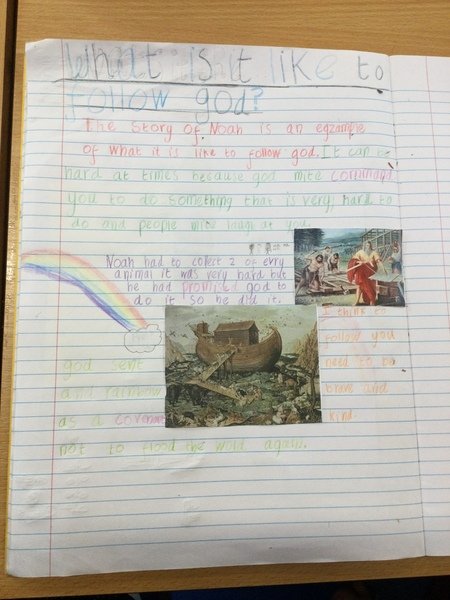 What is it like to
follow god?
The story of Noah is an egzample
of what it is like to follow god. It can be
hard at times because god mite command
you to do something that is very, hard to
do and people mite laugh at you.
Noah had to collect 2 of evry
animal it was very hard but
he had promised god to
do it so he did it.
I think to
follow you
need to be
brave and
kind.
god sent
and rainbow
as a covenant
not to flood the wold again.